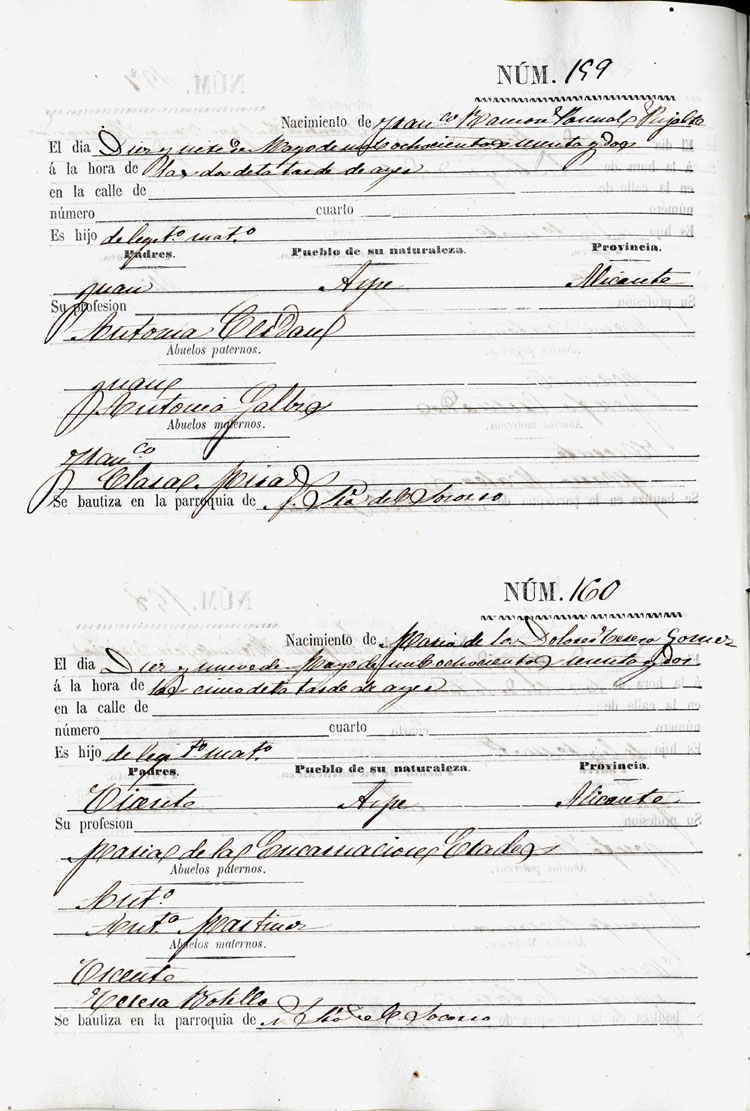 NÚM. 159
Nacimiento de Fran.co Ramon Pascual
El dia Diez y nueve de Mayo de mil ochocientos setenta y dos
á la hora de las dos de la tarde de ayer
en la calle de
número cuarto
Es hijo de legit.o mat.o
Padres. Pueblo de su naturaleza. Provincia.
Juan Aspe Alicante
Su profesion
Antonia
Abuelos paternos.
Juan
Antonia
Abuelos maternos.
Fran.co
Clara
Se bautiza en la parroquia de N. Sra del Socorro
NÚM. 160
Nacimiento de Maria de los Dolores Teresa Gomez
El dia Diez y nueve de Mayo de mil ochocientos setenta y dos
á la hora de las cinco de la tarde de ayer
en la calle de
número cuarto
Es hijo de legi.to mat.o
Padres. Pueblo de su naturaleza. Provincia.
Vicente Aspe Alicante
Su profesion
Maria de la Encarnacion
Abuelos paternos.
Ant.o
Ant.a Martinez
Abuelos maternos.
Vicente
Teresa Botella
Se bautiza en la parroquia de N. Sra del Socorro